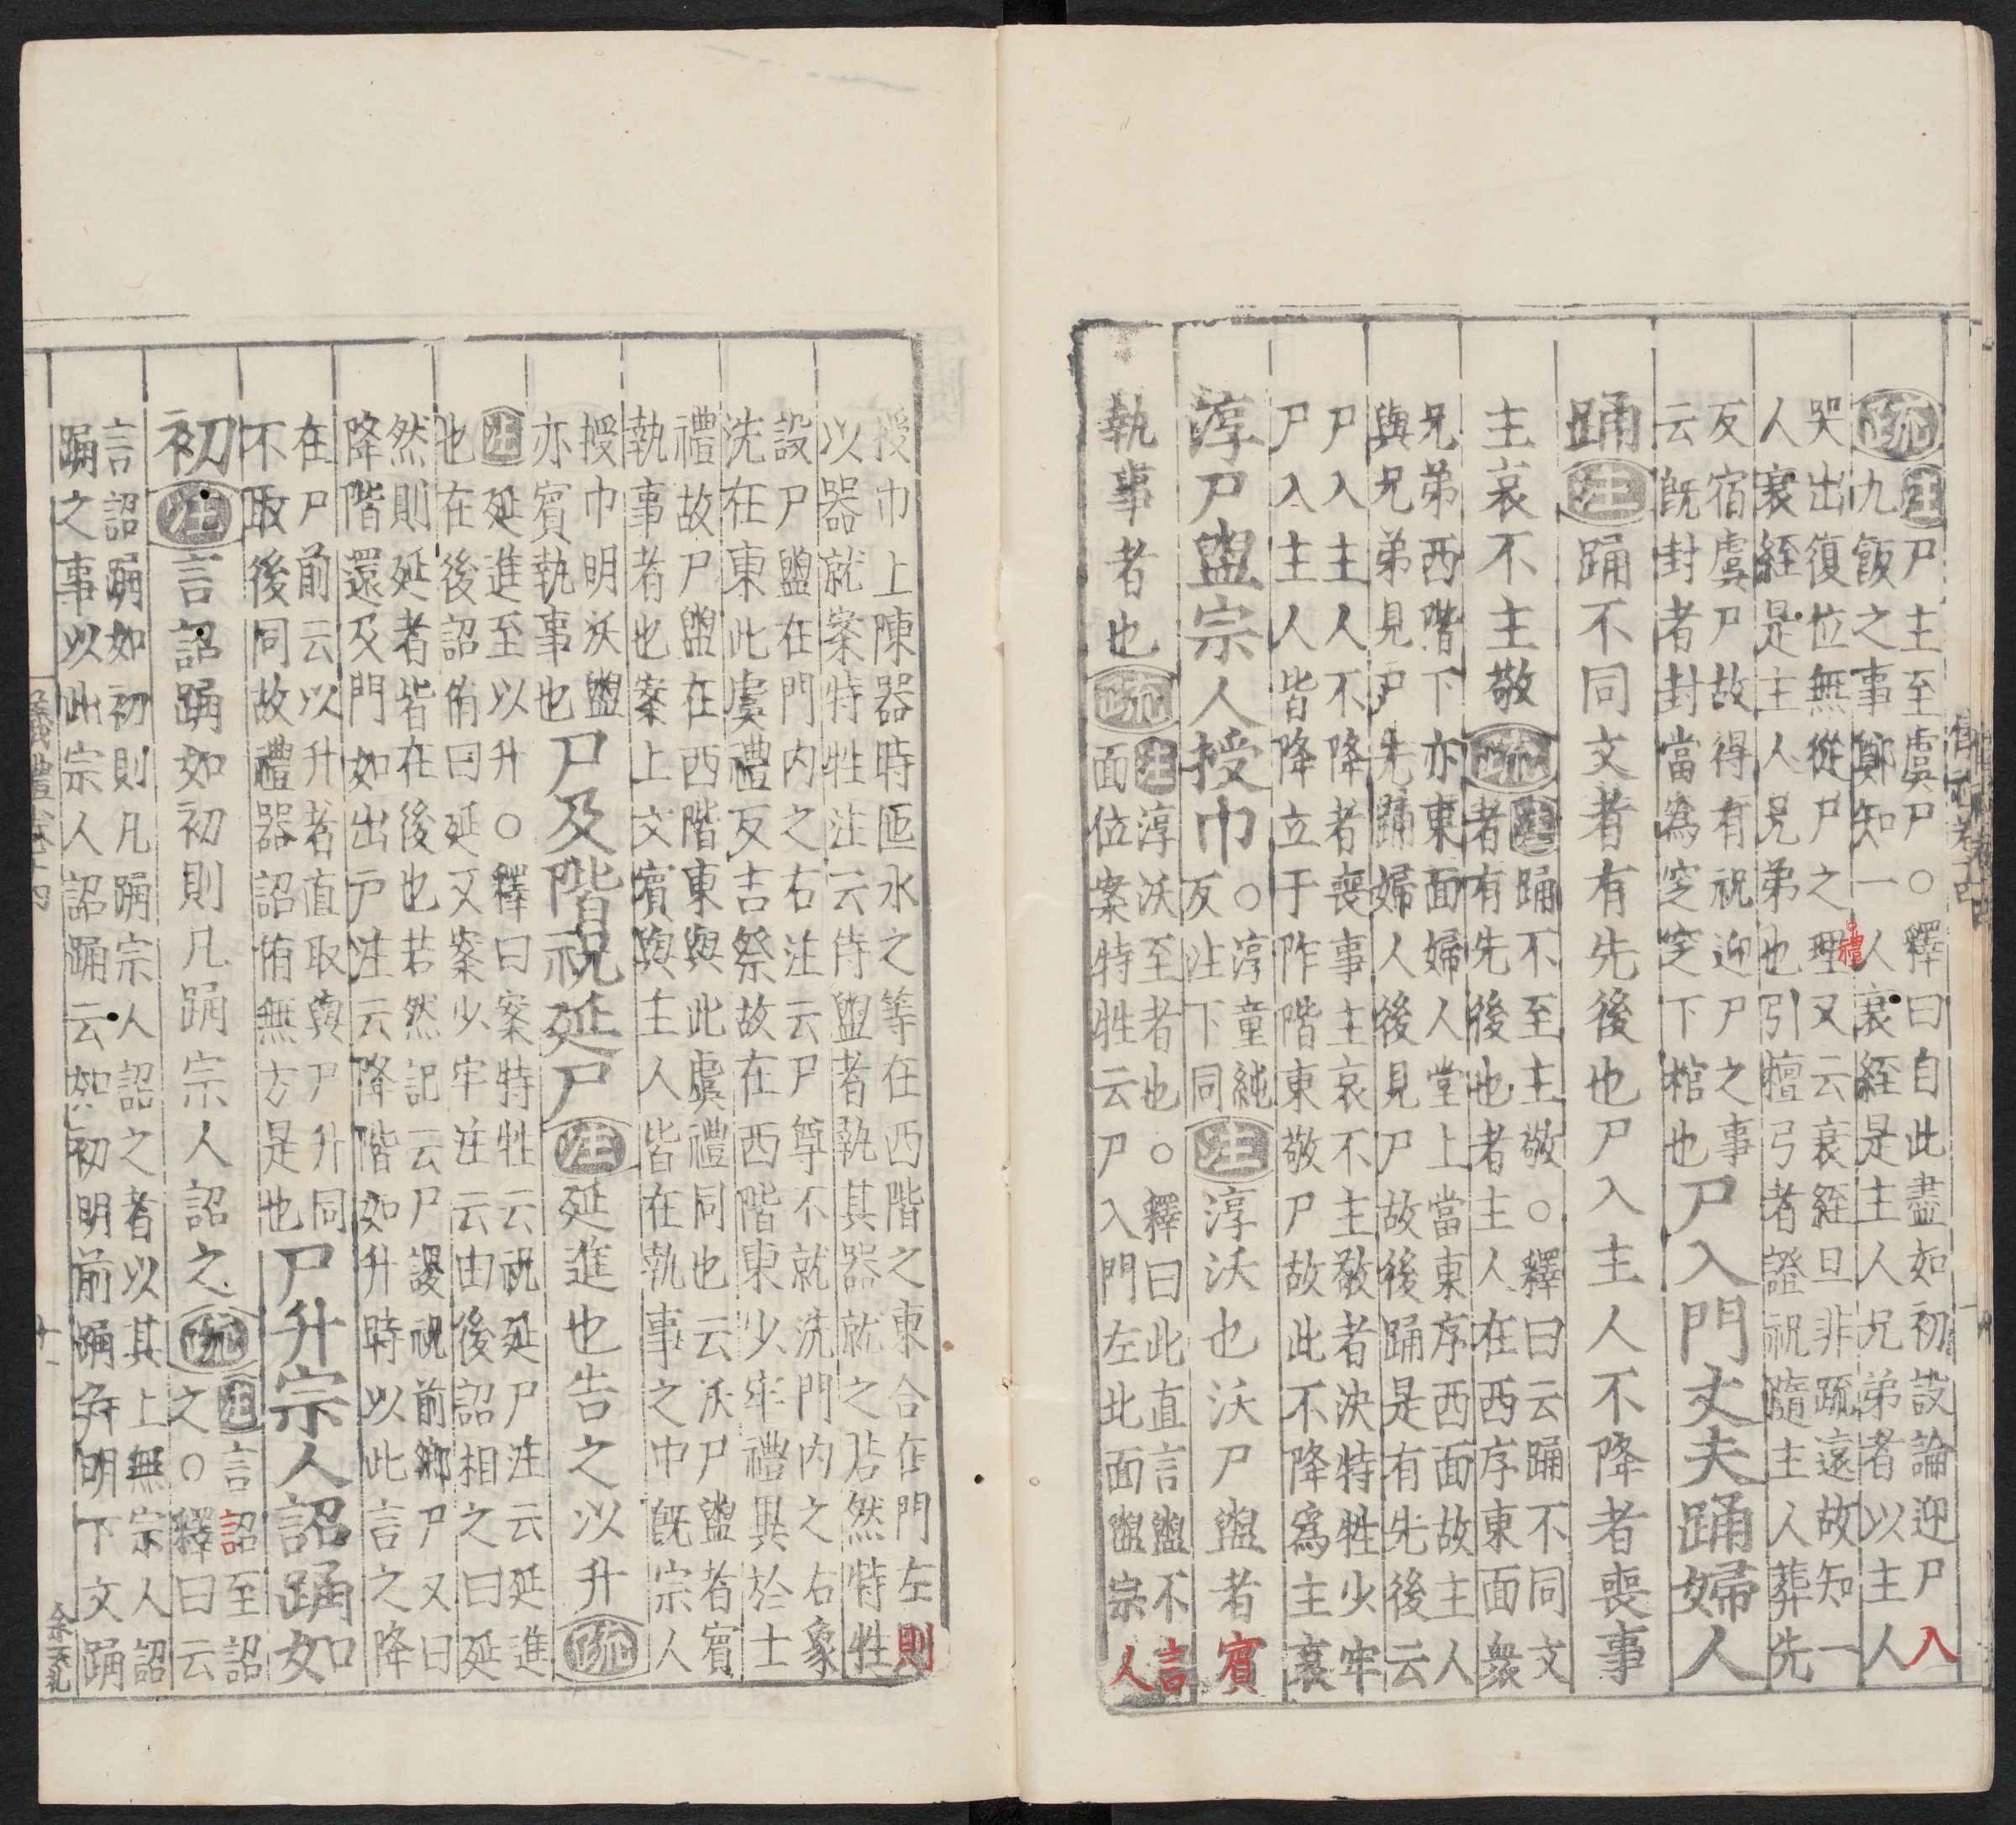 疏注尸主至虞尸○釋曰自此盡如初設論迎尸入
九飯之事鄭知一人衰絰是主人兄弟者以主人
哭出復位無從尸之理又云衰絰旦非疏遠故知一
人衰絰是主人兄弟也引檀弓者證祝隨主人葬先
反宿虞尸故得有祝迎尸之事
云旣封者封當為窆窆下棺也尸入門丈夫踊婦人
踊注踊不同文者有先後也尸入主人不降者喪事
主哀不主敬疏注踊不至主敬○釋曰云踊不同文
者有先後也者主人在西序東面衆
兄弟西階下亦東面婦人堂上當東序西面故主人
與兄弟見尸先踊婦人後見尸故後踊是有先後云
尸入主人不降者喪事主哀不主敬者決特牲少牢
尸入主人皆降立于阼階東敬尸故此不降為主哀
淳尸盥宗人授巾○淳童純
反注下同注淳沃也沃尸盥者賓
執事者也疏注淳沃至者也○釋曰此直言盥不言
面位案特牲云尸入門左北面盥宗人
授巾上陳器時匜水之等在西階之東合在門左則
以器就案特牲注云侍盥者執其器就之若然特牲
設尸盥在門內之右注云尸尊不就洗門內之右象
洗在東此虞禮反吉祭故在西階東少牢禮異於士
禮故尸盥在西階東與此虞禮同也云沃尸盥者賓
執事者也案上文賓與主人皆在執事之中旣宗人
授巾明沃盥
亦賓執事也尸及階祝延尸注延進也告之以升疏
注延進至以升○釋曰案特牲云祝延尸注云延進
也在後詔侑曰延又案少牢注云由後詔相之曰延
然則延者皆在後也若然記云尸謖祝前鄉尸又曰
降階還及門如出戶注云降階如升時以此言之降
在尸前云以升者直取與尸升同
不取後同故禮器詔侑無方是也尸升宗人詔踊如
初注言詔踊如初則凡踊宗人詔之疏注言詔至詔
之○釋曰云
言詔踊如初則凡踊宗人詔之者以其上無宗人詔
踊之事以此宗人詔踊云如初明前踊并明下文踊
余天礼